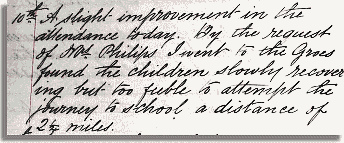 10th A slight improvement in the
attendance today. By the request
of Mrs Philips I went to the Grees
found the children slowly recover
ing but too fuble to attempt the
journey to school a distance of
2½ miles.